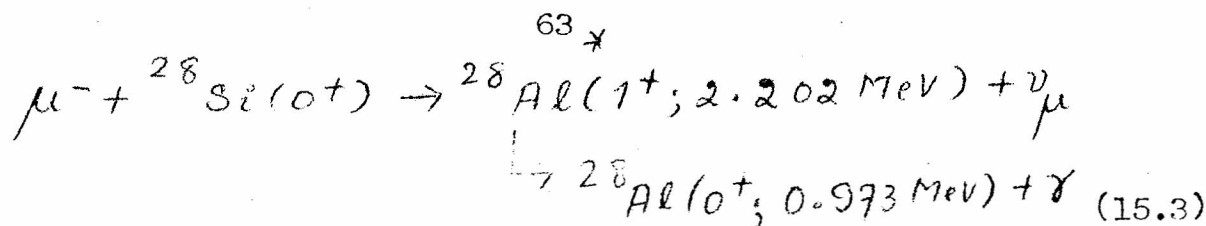 63
μ⁻ + ²⁸Si(0⁺) → ²⁸Al*(1⁺; 2.202 MeV) + νμ
↳ ²⁸Al(0⁺; 0.973 MeV) + γ (15.3)